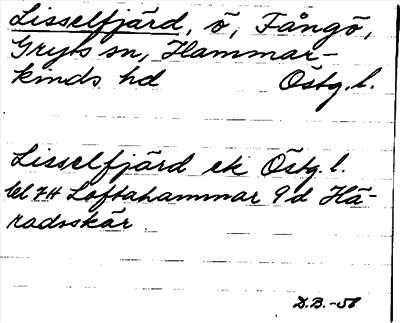 Lisselfjärd, ö, Fångö,
Gryts sn, Hammar-
kinds hd Östg. l.
Lisselfjärd ek Östg. l.
bl 7H Loftahammar 9 d Hä-
radsskär
D.B.-58